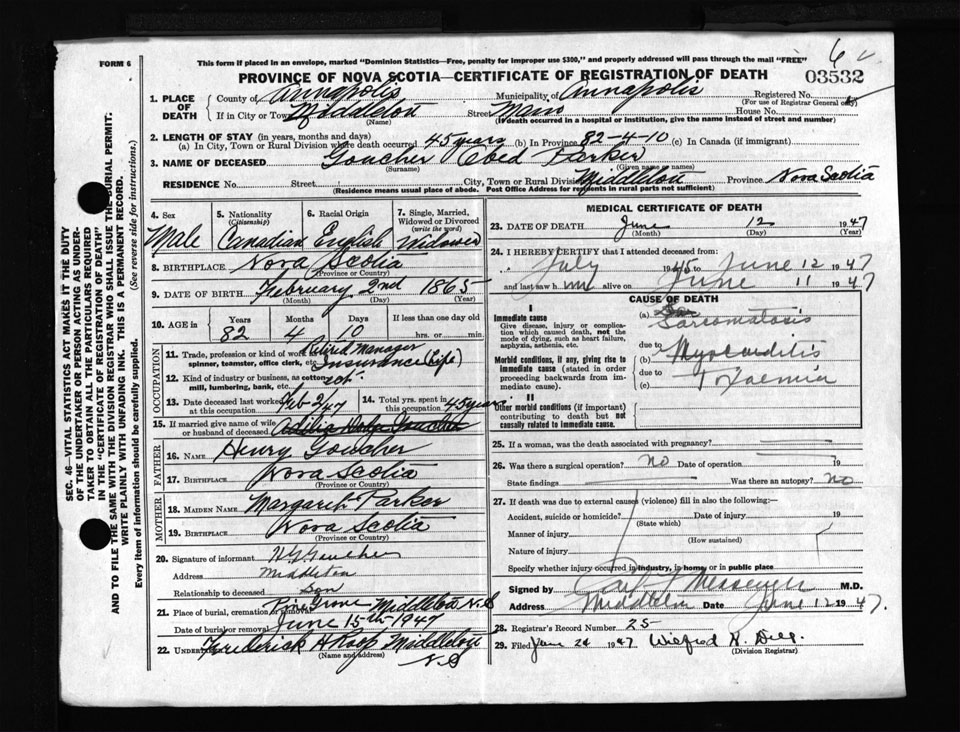 6
FORM 6
This form if placed in an envelope, marked "Dominion Statistics—Free, penalty for improper use $300," and properly addressed will pass through the mail "FREE"
PROVINCE OF NOVA SCOTIA—CERTIFICATE OF REGISTRATION OF DEATH
03532
SEC. 46—VITAL STATISTICS ACT MAKES IT THE DUTY
OF THE UNDERTAKER OR PERSON ACTING AS UNDER-
TAKER TO OBTAIN ALL THE PARTICULARS REQUIRED
IN THE "CERTIFICATE OF REGISTRATION OF DEATH"
AND TO FILE THE SAME WITH THE DIVISION REGISTRAR WHO SHALL ISSUE THE BURIAL PERMIT.
WRITE PLAINLY WITH UNFADING INK. THIS IS A PERMANENT RECORD.
Every item of information should be carefully supplied. (See reverse side for instructions.)
1. PLACE OF DEATH
County of Annapolis Municipality of Annapolis Registered No.
(For use of Registrar General only)
If in City or Town Middleton Street Main House No.
(Name) (If death occurred in a hospital or institution, give the name instead of street and number)
2. LENGTH OF STAY (in years, months and days)
(a) In City, Town or Rural Division where death occurred 45 years (b) In Province 82-4-10 (c) In Canada (if immigrant)
3. NAME OF DECEASED Goucher Obed Parker
(Surname) (Given name or names)
RESIDENCE No. Street City, Town or Rural Division Middleton Province Nova Scotia
(Residence means usual place of abode. Post Office Address for residents in rural parts not sufficient)
4. Sex Male
5. Nationality (Citizenship) Canadian
6. Racial Origin English
7. Single, Married, Widowed or Divorced (write the word) Widower
8. BIRTHPLACE Nova Scotia
(Province or Country)
9. DATE OF BIRTH February 2nd 1865
(Month) (Day) (Year)
10. AGE in Years Months Days If less than one day
82 4 10 hrs. or min.
OCCUPATION
11. Trade, profession or kind of work as Retired Manager
spinner, teamster, office clerk, etc. Insurance (Life)
12. Kind of industry or business, as cotton
mill, lumbering, bank, etc.
13. Date deceased last worked at this occupation Feb 2/47
14. Total yrs. spent in this occupation 45 years
15. If married give name of wife
or husband of deceased
FATHER
16. NAME Henry Goucher
17. BIRTHPLACE Nova Scotia
(Province or Country)
MOTHER
18. MAIDEN NAME Margaret Parker
19. BIRTHPLACE Nova Scotia
(Province or Country)
20. Signature of informant Goucher
Address Middleton
Relationship to deceased Son
21. Place of burial, cremation or removal Pine Grove Middleton N.S
Date of burial or removal June 15th 1947
22. UNDERTAKER Frederick A Roop Middleton
(Name and address) N.S
MEDICAL CERTIFICATE OF DEATH
23. DATE OF DEATH June 12 1947
(Month) (Day) (Year)
24. I HEREBY CERTIFY that I attended deceased from:
July 1945 to June 12 1947
and last saw him alive on June 11 1947
CAUSE OF DEATH
I
Immediate cause
Give disease, injury or complica-
tion which caused death, not the
mode of dying, such as heart failure,
asphyxia, asthenia, etc.
(a) Sarcomatosis
due to
Morbid conditions, if any, giving rise to
immediate cause (stated in order
proceeding backwards from im-
mediate cause).
(b) Myocarditis
due to
(c) Toxaemia
II
Other morbid conditions (if important)
contributing to death but not
causally related to immediate cause.
25. If a woman, was the death associated with pregnancy?
26. Was there a surgical operation? no Date of operation 19
State findings Was there an autopsy? no
27. If death was due to external causes (violence) fill in also the following:—
Accident, suicide or homicide? Date of injury 19
(State which)
Manner of injury
(How sustained)
Nature of injury
Specify whether injury occurred in industry, in home, or in public place
Signed by Messenger M.D.
Address Middleton Date June 12 1947.
28. Registrar's Record Number 25
29. Filed June 24 1947 Wilfred R. Dill.
(Division Registrar)